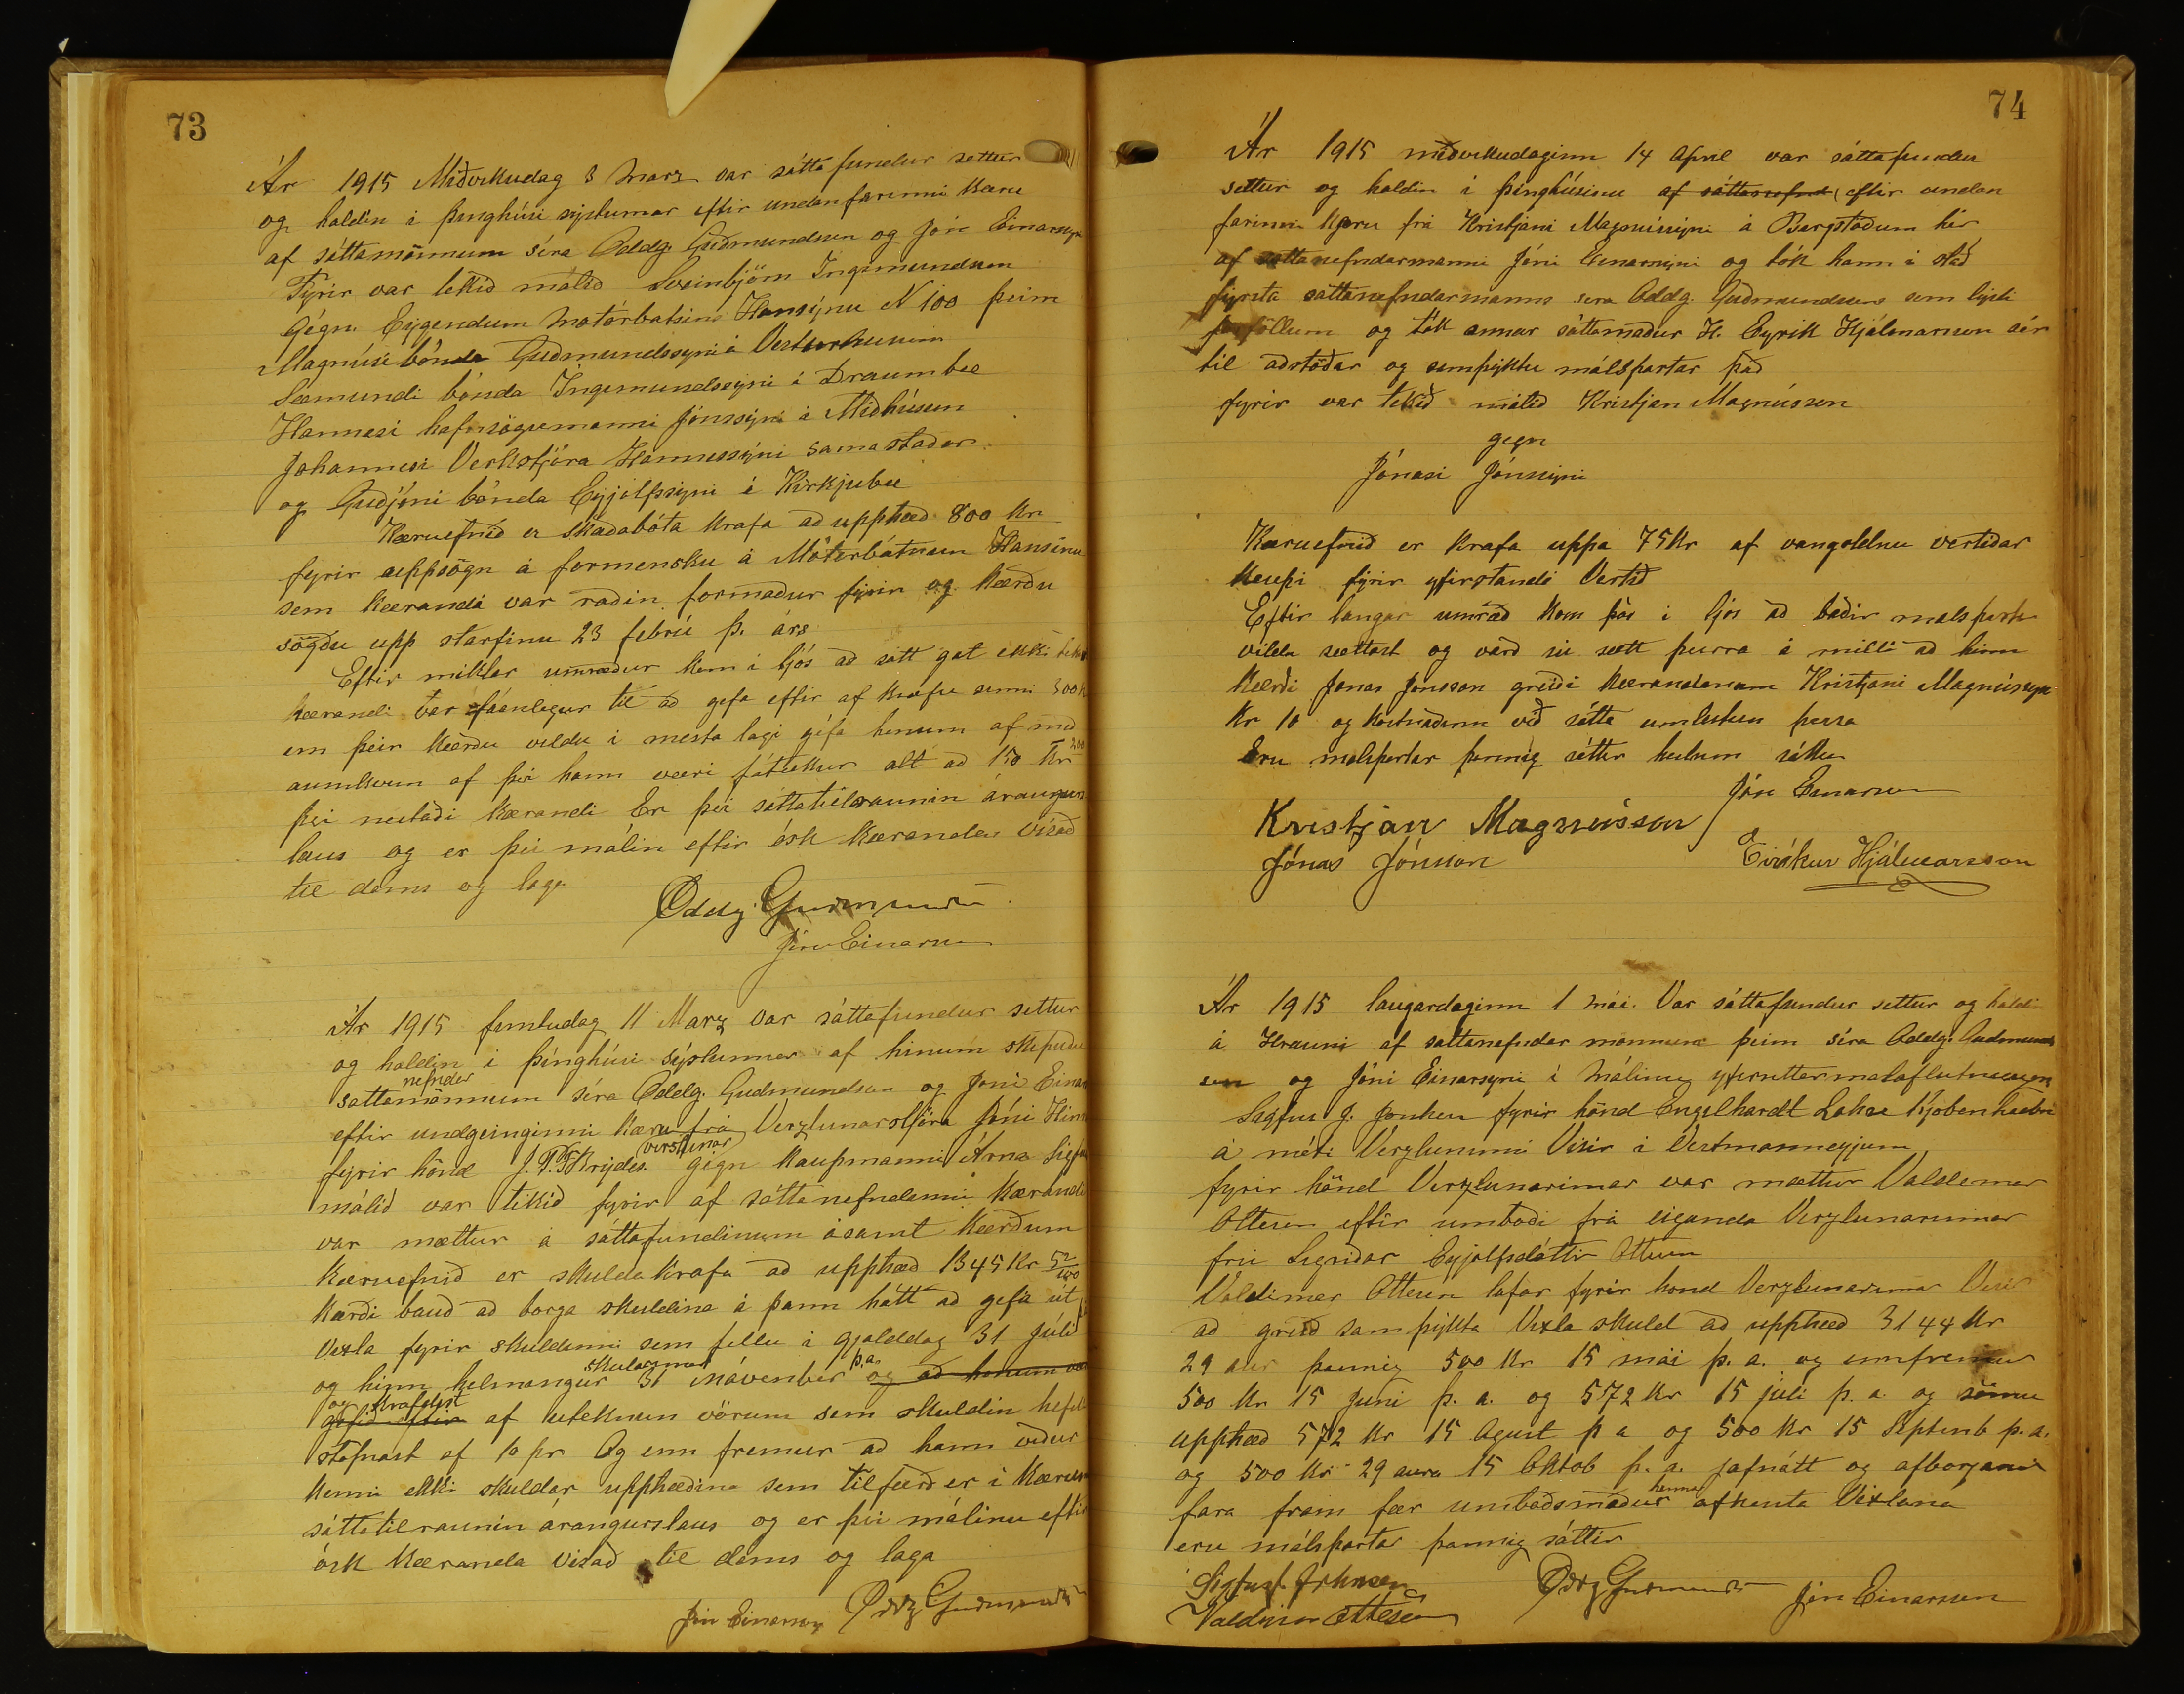 73
Ár 1915 Miðvikudag 3 Mars var sáttafundur settur
og haldin i þinghúsi sýslunnar eftir undanfarinni kæru
af sáttamönnum síra Oddg. Guðmundsen og Jóni Einarssyni
Fyrir var tekið málið Sveinbjörn Ingimundsson
Gegn. Eygendum Motórbatsins Hansýnu N 100 þeim
Magnúsi bónda Guðmundssyni á Vesturhusum
Sæmundi bónda Ingimundssyni i Draumbæ
Hannesi hafnsögumanni Jónssýni á Miðhúsum
Jóhannesi Verkstjóra Hannessyni samastaðar
og Guðjóni bónda Eyjólfssyni á Kirkjubæ
Kæruefnið er skaðabóta krafa að upphæð 800 kr
fyrir uppsögn á formensku á Mótorbátnum Hansínu
sem kærandi var raðin formaður fyrir og kærðu
sögðu upp starfinu 23 febrú þ. árs
Eftir miklar umræður kom i ljós að sátt gat ekki tekist
kærandi var fáanlegur til að gefa eftir af kröfu sinni 300 k
en þeir kærðu vildu i mesta lagi géfa honum af með
aumkvun af því hann væri fátækur alt að 150 kr 200
því neitaði kærandi Er þvi sáttatilraunin árangurs
laus og er þvi málin eftir ósk kæranda vísað
til dóms og laga
Oddg. Guðmunds
Jón Einarsson
Ár 1915 fimtudag 11 Marz var sáttafundur settur
og haldin i þinghúsi sýslunnar af hinum skipuðu
nefndar
sattamönnum síra Oddg. Gudmundsen og Jóni Einar
eftir undgeinginni kæru frá Verzlunarstjóra Jóni Hinr
verslunar
fyrir hönd J.P.T Brydes. gégn kaupmanni Árna Sigfu
málið var tikið fyrir af sáttanefndinni kærandi
var mættur á sáttafundinum ásamt kærðum
Kæruefnið er skuldakrafa að upphæð 1345 Kr 52/100
Kærði bauð að borga skuldina á þann hátt að gefa út
Vexla fyrir skuldinni sem fellu i gjalddag 31 Júlí
skuldarinnar þ.a.
og hinn helmangur 31 Nóvember og að honum var
og krafdist
gefið eftir af uteknum vörum sem skuldin hefur
stofnast af 10 pr Og enn fremur að hann viður
kenni ekki skuldar upphæðina sem tilfærð er i kærunni
sáttatilraunin árangurslaus og er þvi málinu eftir
ósk kæranda visað til dóms og laga
Jón Einarsson Oddg Guðmunds
74
Ár 1915 miðvikudaginn 14 April var sáttafundur
settur og haldin i þinghúsinu af sáttanefnd eftir undan
farinni kæru frá Kristjáni Magnússyni á Bergstöðum hér
af sattanefndarmanni Jóni Einarssyni og tók hann i stað
fyrsta sáttanefndarmanns sera Oddg. Guðmundsens sem lýsti
forföllum og tók annar sáttamaður H. Eyrik Hjálmarsson sér
til aðstöðar og samþyktu málspartar það
fyrir var tekið málið Kristjan Magnússon
gegn
Jónasi Jónssyni
Kæruefnið er krafa uppa 75 Kr af vangoldnu vertiðar
kaupi fyrir yfirstandi Vertið
Eftir langar umræð kom þáð i ljós að báðir malspartar
vildu sættast og varð sú sætt þeirra á milli að hinn
kærði Jonas Jónsson greiði kærandanum Kristjani Magnússyni
kr 10 og kostnaðinn við sátta umleitun þessa
Eru malspartar þannig sáttir heilum sáttum
Jón Einarsson
Kristján Magnússon
Jónas Jónsson Eiríkur Hjálmarsson
Ár 1915 laugardaginn 1 mái. Var sáttafundur settur og haldin
á Hrauni af sattanefndar mönnum þeim síra Oddg. Gudmund
sen og Jóni Einarsyni i Málinu yfirréttarmalaflutnings
Sigfús J. Jonhsen fyrir hönd Engelhardt Lohse Kjobenhavn
á móti Verzluninni Visir i Vestmanneyjum
fyrir hönd Verzlunarinnar var mættur Valdemar
Ottesen eftir umboði frá eiganda Verzlunarinnar
frú Sigriðar Eyjolfsdóttir Ottesen
Valdimar Ottesen lofar fyrir hönd Verzlunarinnar Visir
að greið samþykta Vixla skuld að upphæð 3144 kr
29 aur þannig 500 kr 15 mái þ.a. og ennfremur
500 kr 15 Juni þ.a. og 572 kr 15 júli þ.a. og sömu
upphæð 572 kr 15 Agust þ a og 500 kr 15 Septemb þ.a.
og 500 kr 29 aura 15 Oktob þ.a. jafnátt og afborganir
hennar
fara fram fær umboðsmaður afhenta Vixlana
eru málspartar þannig sáttir
Sigfus J. Johnsen Oddg Guðmunds Jón Einarsson
Valdimar Ottesen